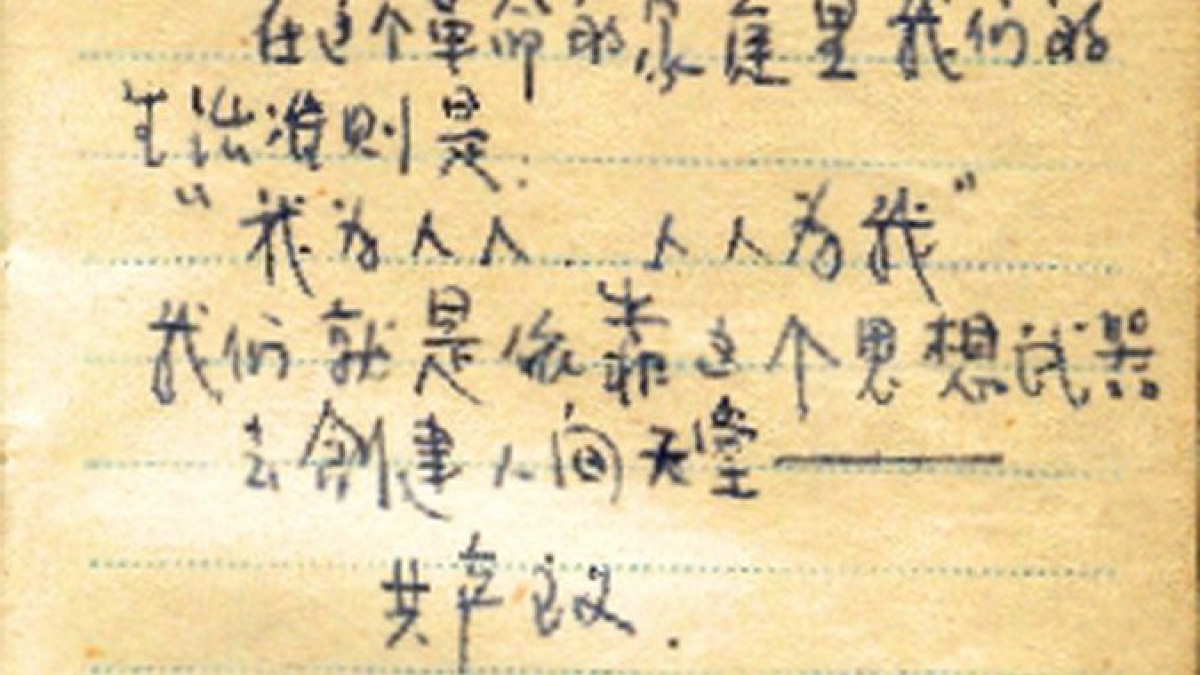 在这个革命的家庭里我们的
生活准则是.
“我为人人. 人人为我”
我们就是依靠这个思想武器
去创建人间天堂——
共产主义.